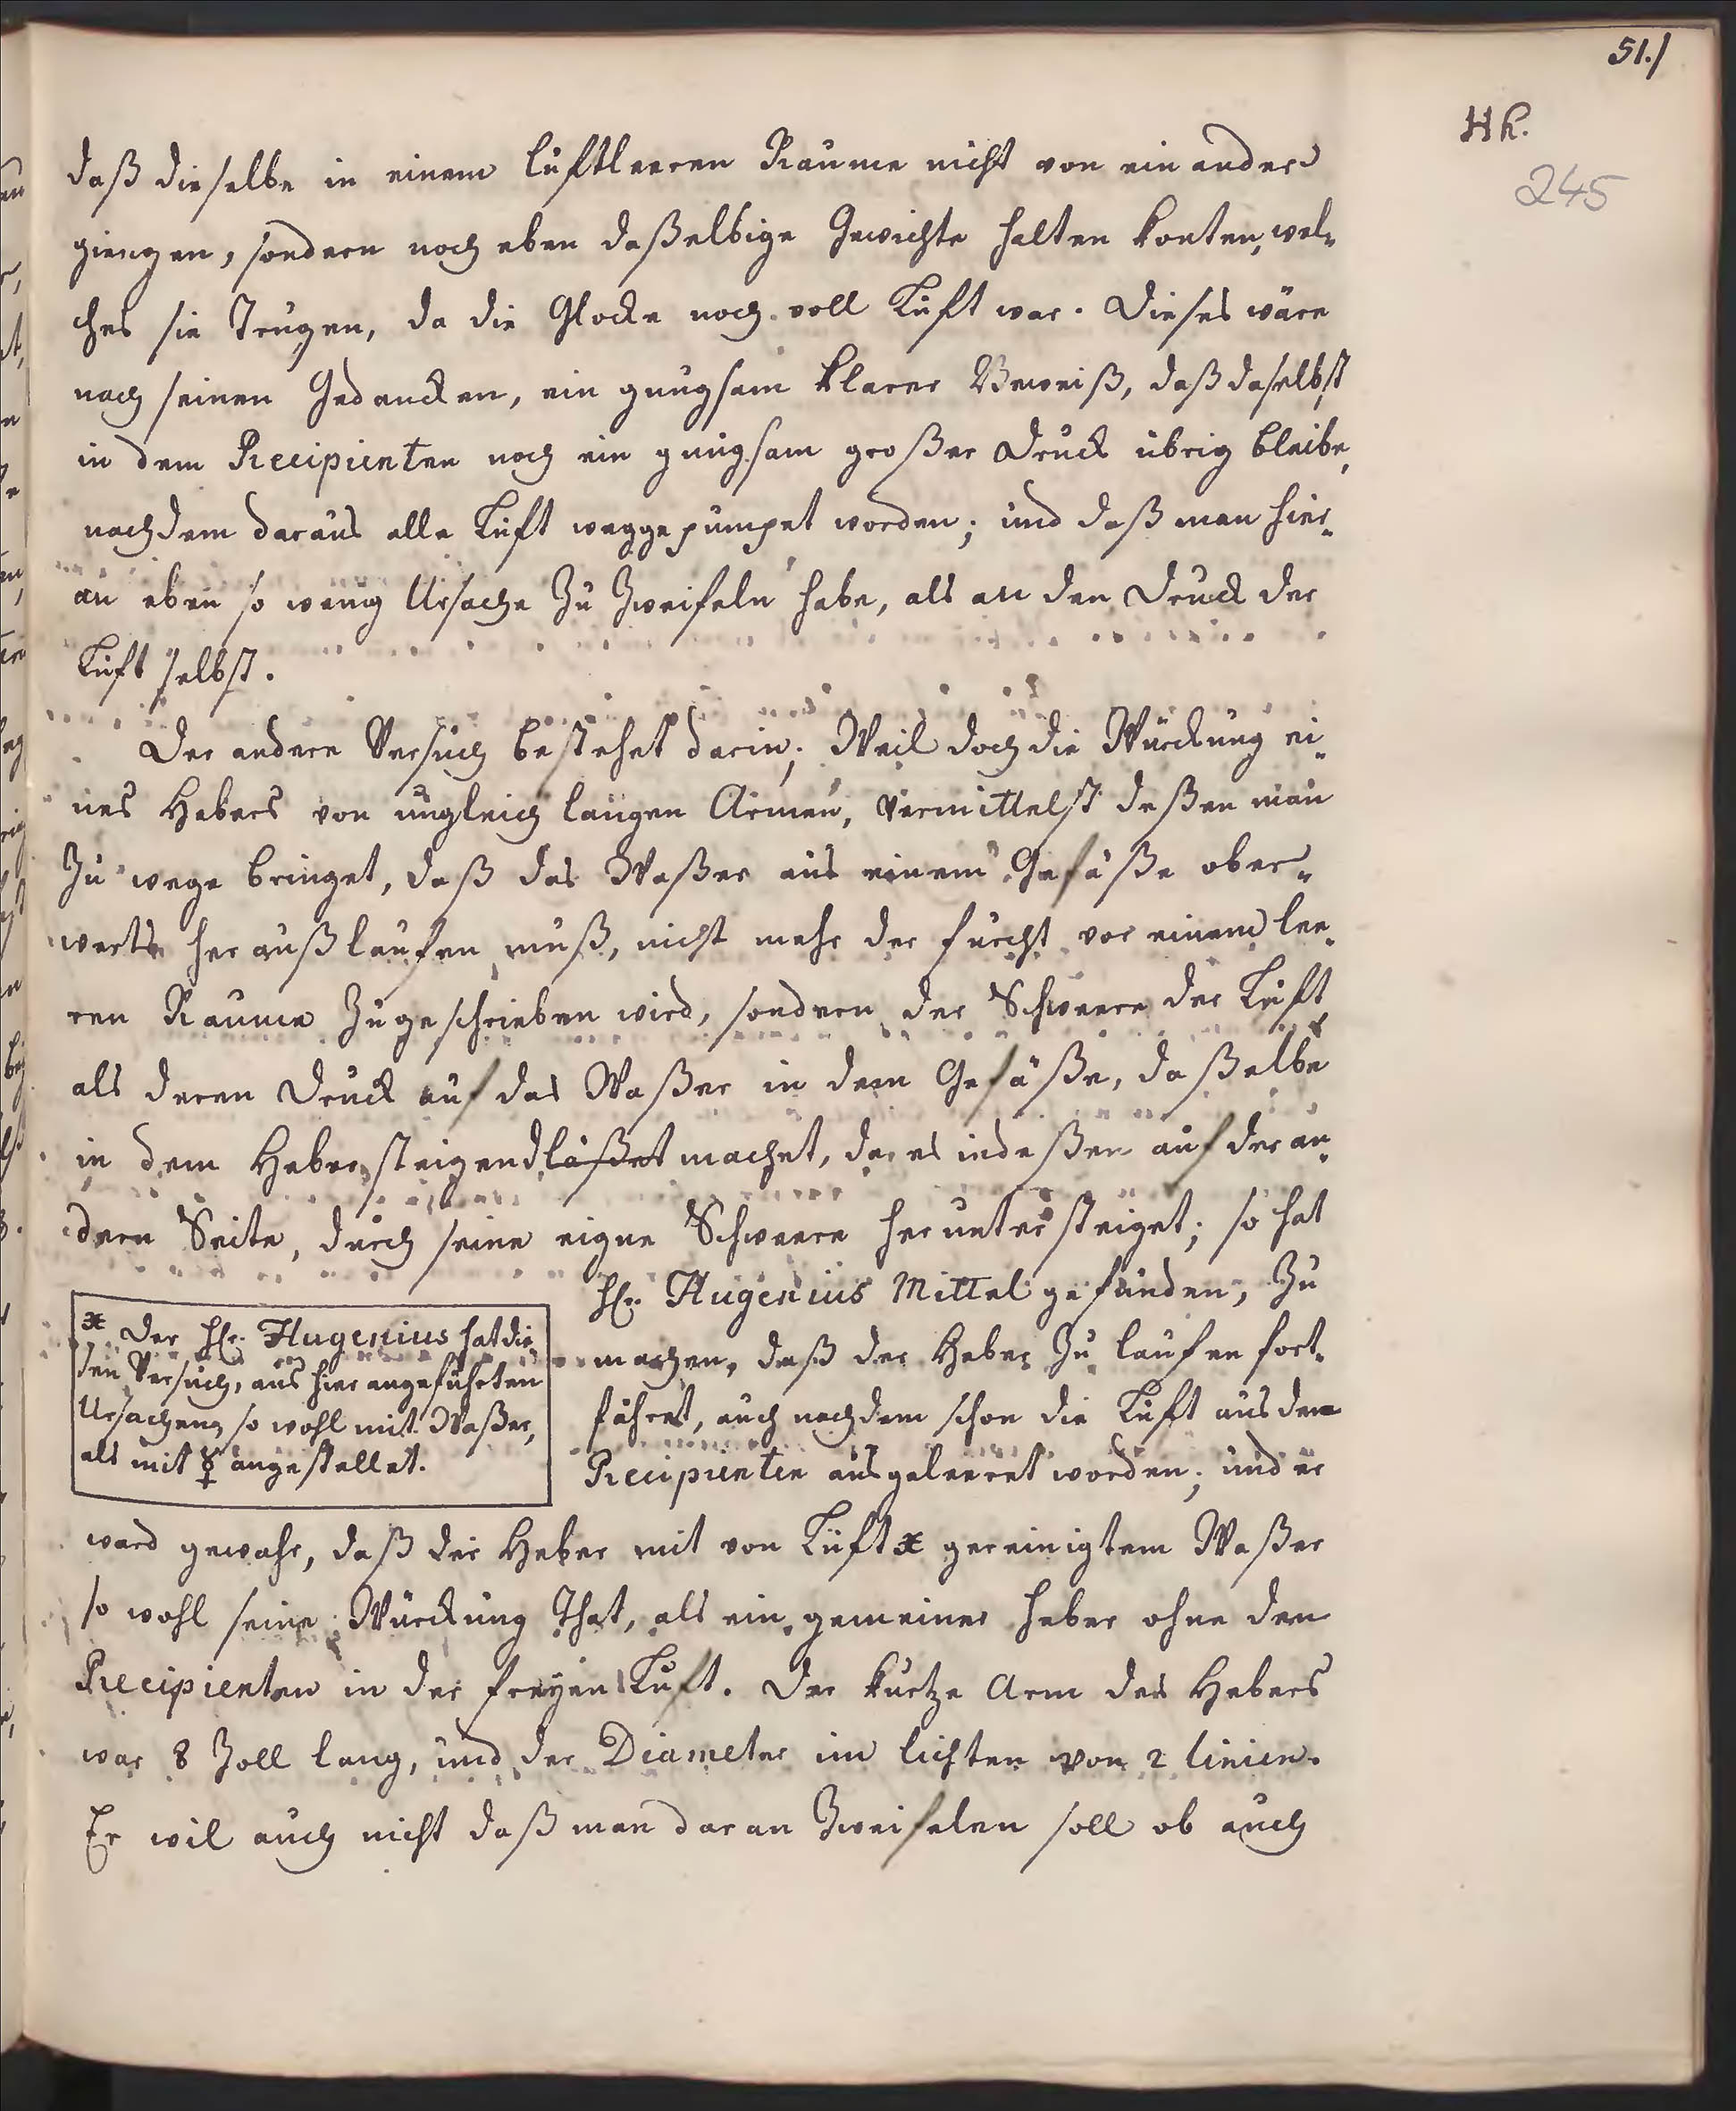 51./
Hk.
245
daß dieselbe in einem luftleeren Raume nicht von ein ander
giengen, sondern noch eben daßelbige Gewichte halten konten, wel-
ches sie Trugen, da die Glocke noch voll Luft war. Dieses wäre
nach seinen Gedancken, ein gnugsam klarer Beweiß, daß daselbst
in dem Recipienten noch ein gnugsam großer Druck übrig bleibe,
nachdem daraus alle Luft weggepumpet worden; und daß man hier-
an eben so wenig Ursache Zu Zweifeln habe, als an den Druck der
Luft selbst.
Der andere Versuch bestehet darin; Weil doch die Würckung ei-
nes Hebers von ungleich langen Armen, vermittelst deßen man
Zu wege bringet, daß das Waßer aus einem Gefäße ober-
werts her auß laufen muß, nicht mehr der furcht vor einem lee-
ren Raume Zugeschrieben wird, sondern der Schweere der Luft
als deren Druck auf das Waßer in dem Gefäße, daßelbe
in dem Heber steigend läßet machet, da es indeßen auf der an-
dern Seite, durch seine eigne Schweere herunter steiget; so hat
H. Hugenius Mittel gefunden, Zu
machen, daß der Heber Zu laufen fort-
fähret, auch nachdem schon die Luft aus dem
Recipienten ausgeleeret worden; und er
x Der H. Hugenius hat die-
sen Versuch, aus hier angeführten
Ursachen, so wohl mit Waßer,
als mit ☿ angestellet.
ward gewahr, daß der Heber mit von Luft x gereinigtem Waßer
so wohl seine Würckung That, als ein gemeiner heber ohne den
Recipienten in der freyen Luft. Der kurtze Arm des Hebers
war 8 Zoll lang, und der Diameter im lichten von 2 linien.
Er wil auch nicht daß man daran Zweifelen soll ob auch